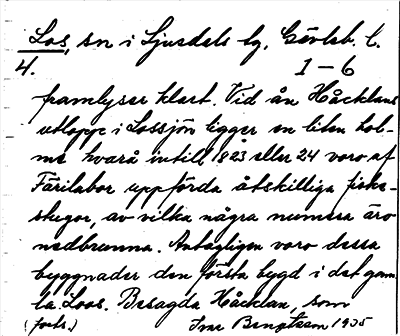 Los, sn i Ljusdals tg, Gävleb. l.
4. 1-6
framlyser klart. Vid ån Håcklans
utlopp i Lossjön ligger en liten hol-
me hvarå intill 1823 eller 24 voro af
Färilabor uppförda åtskilliga fiske-
stugor, av vilka några numera äro
nedbrunna. Antagligen voro dessa
byggnader den första bygd i det gam-
la Loos. Besagda Håcklan, som
(forts.) Ivar Bengtsson 1935